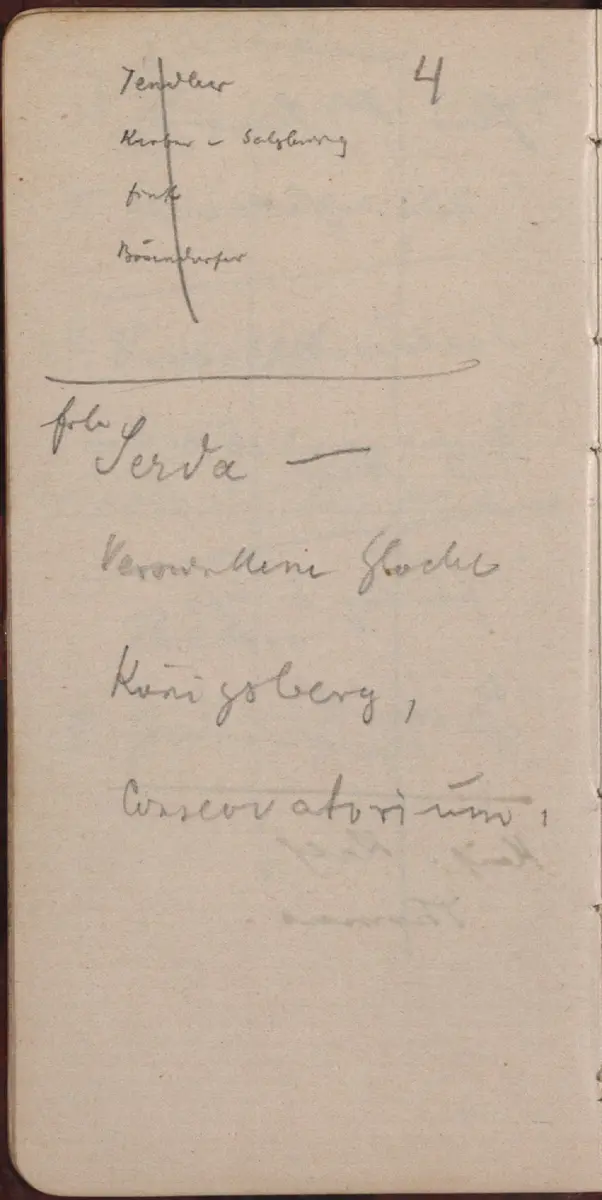 Tendler 4
Kerber – Salzburg
fink
Bösendorfer
frl
Serda —
Versunkene Glocke
Königsberg,
Conservatorium,